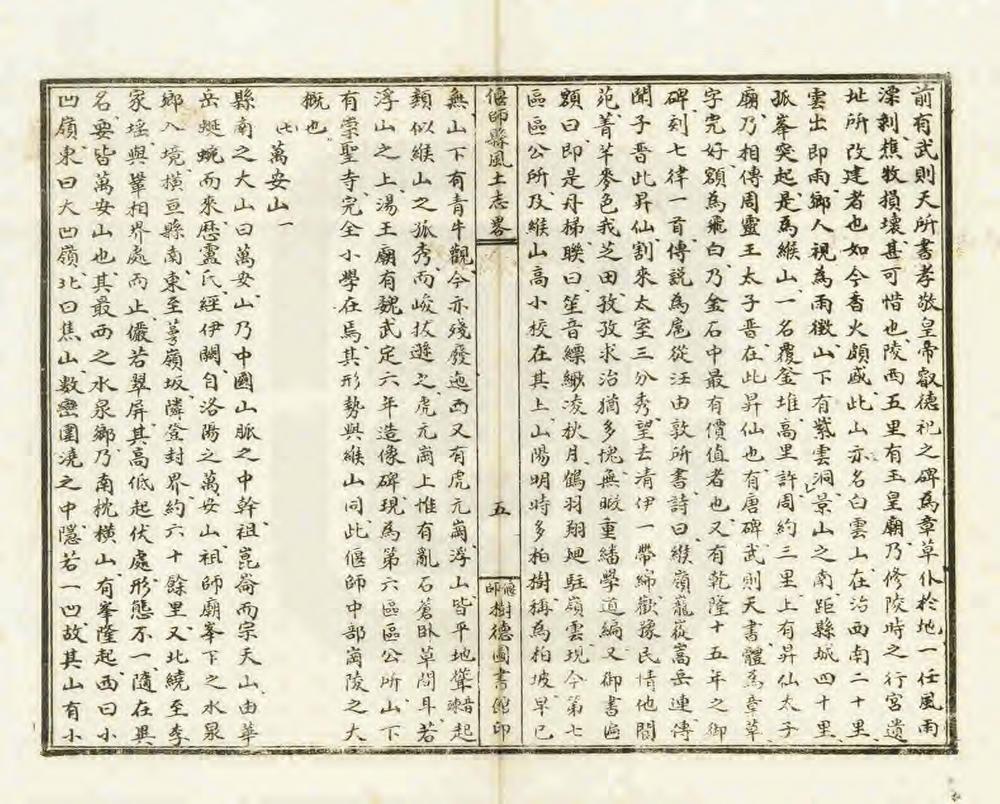 前有武則天所書孝敬皇帝叡德祀之碑為章草仆於地一任風雨
深剝樵牧損壞甚可惜也陵西五里有玉皇廟乃修陵時之行宮遺
址所改建者也如今香火頗盛此山亦名白雲山在治西南二十里
雲出即雨鄉人視為雨徵山下有紫雲洞景山之南距縣城四十里
孤峯突起是為緱山一名覆釜堆高里許周約三里上有昇仙太子
廟乃相傳周靈王太子晋在此昇仙也有唐碑武則天書體為章草
字完好額為飛白乃金石中最有價值者也又有乾隆十五年之御
碑刻七律一首傳說為扈從汪由敦所書詩曰緱嶺巃嵸嵩岳連傳
聞子晋此昇仙割來太室三分秀望去清伊一帶綿歡豫民情他閭
苑菁芊麥色我芝田孜孜求治猶多愧無暇重繙學道編又御書匾
額曰即是丹梯聯曰笙音縹緲凌秋月鶴羽翔廻駐嶺雲現今第七
區區公所及緱山高小校在其上山陽明時多柏樹稱為柏坡早已
偃師縣風土志畧
五
偃師樹德圖書館印
無山下有青牛觀今亦殘廢迤西又有虎元崗浮山皆平地聳起
類似緱山之孤秀而峻拔遜之虎元崗上惟有亂石蒼臥草間耳若
浮山之上湯王廟有魏武定六年造像碑現為第六區區公所山下
有崇聖寺完全小學在焉其形勢與緱山同此偃師中部崗陵之大
概也
㈡萬安山一
縣南之大山曰萬安山乃中國山脈之中幹祖崑崙而宗天山由華
岳蜒蜿而來歷盧氏經伊闕自洛陽之萬安山祖師廟峯下之水泉
鄉入境橫亘縣南東至蕚嶺坂隣登封界約六十餘里又北繞至李
家垤與鞏相界處而止儼若翠屏其高低起伏處形態不一隨在異
名要皆萬安山也其最西之水泉鄉乃南枕橫山有峯隆起西曰小
凹嶺東曰大凹嶺北曰焦山數巒圍澆之中隱若一凹故其山有小